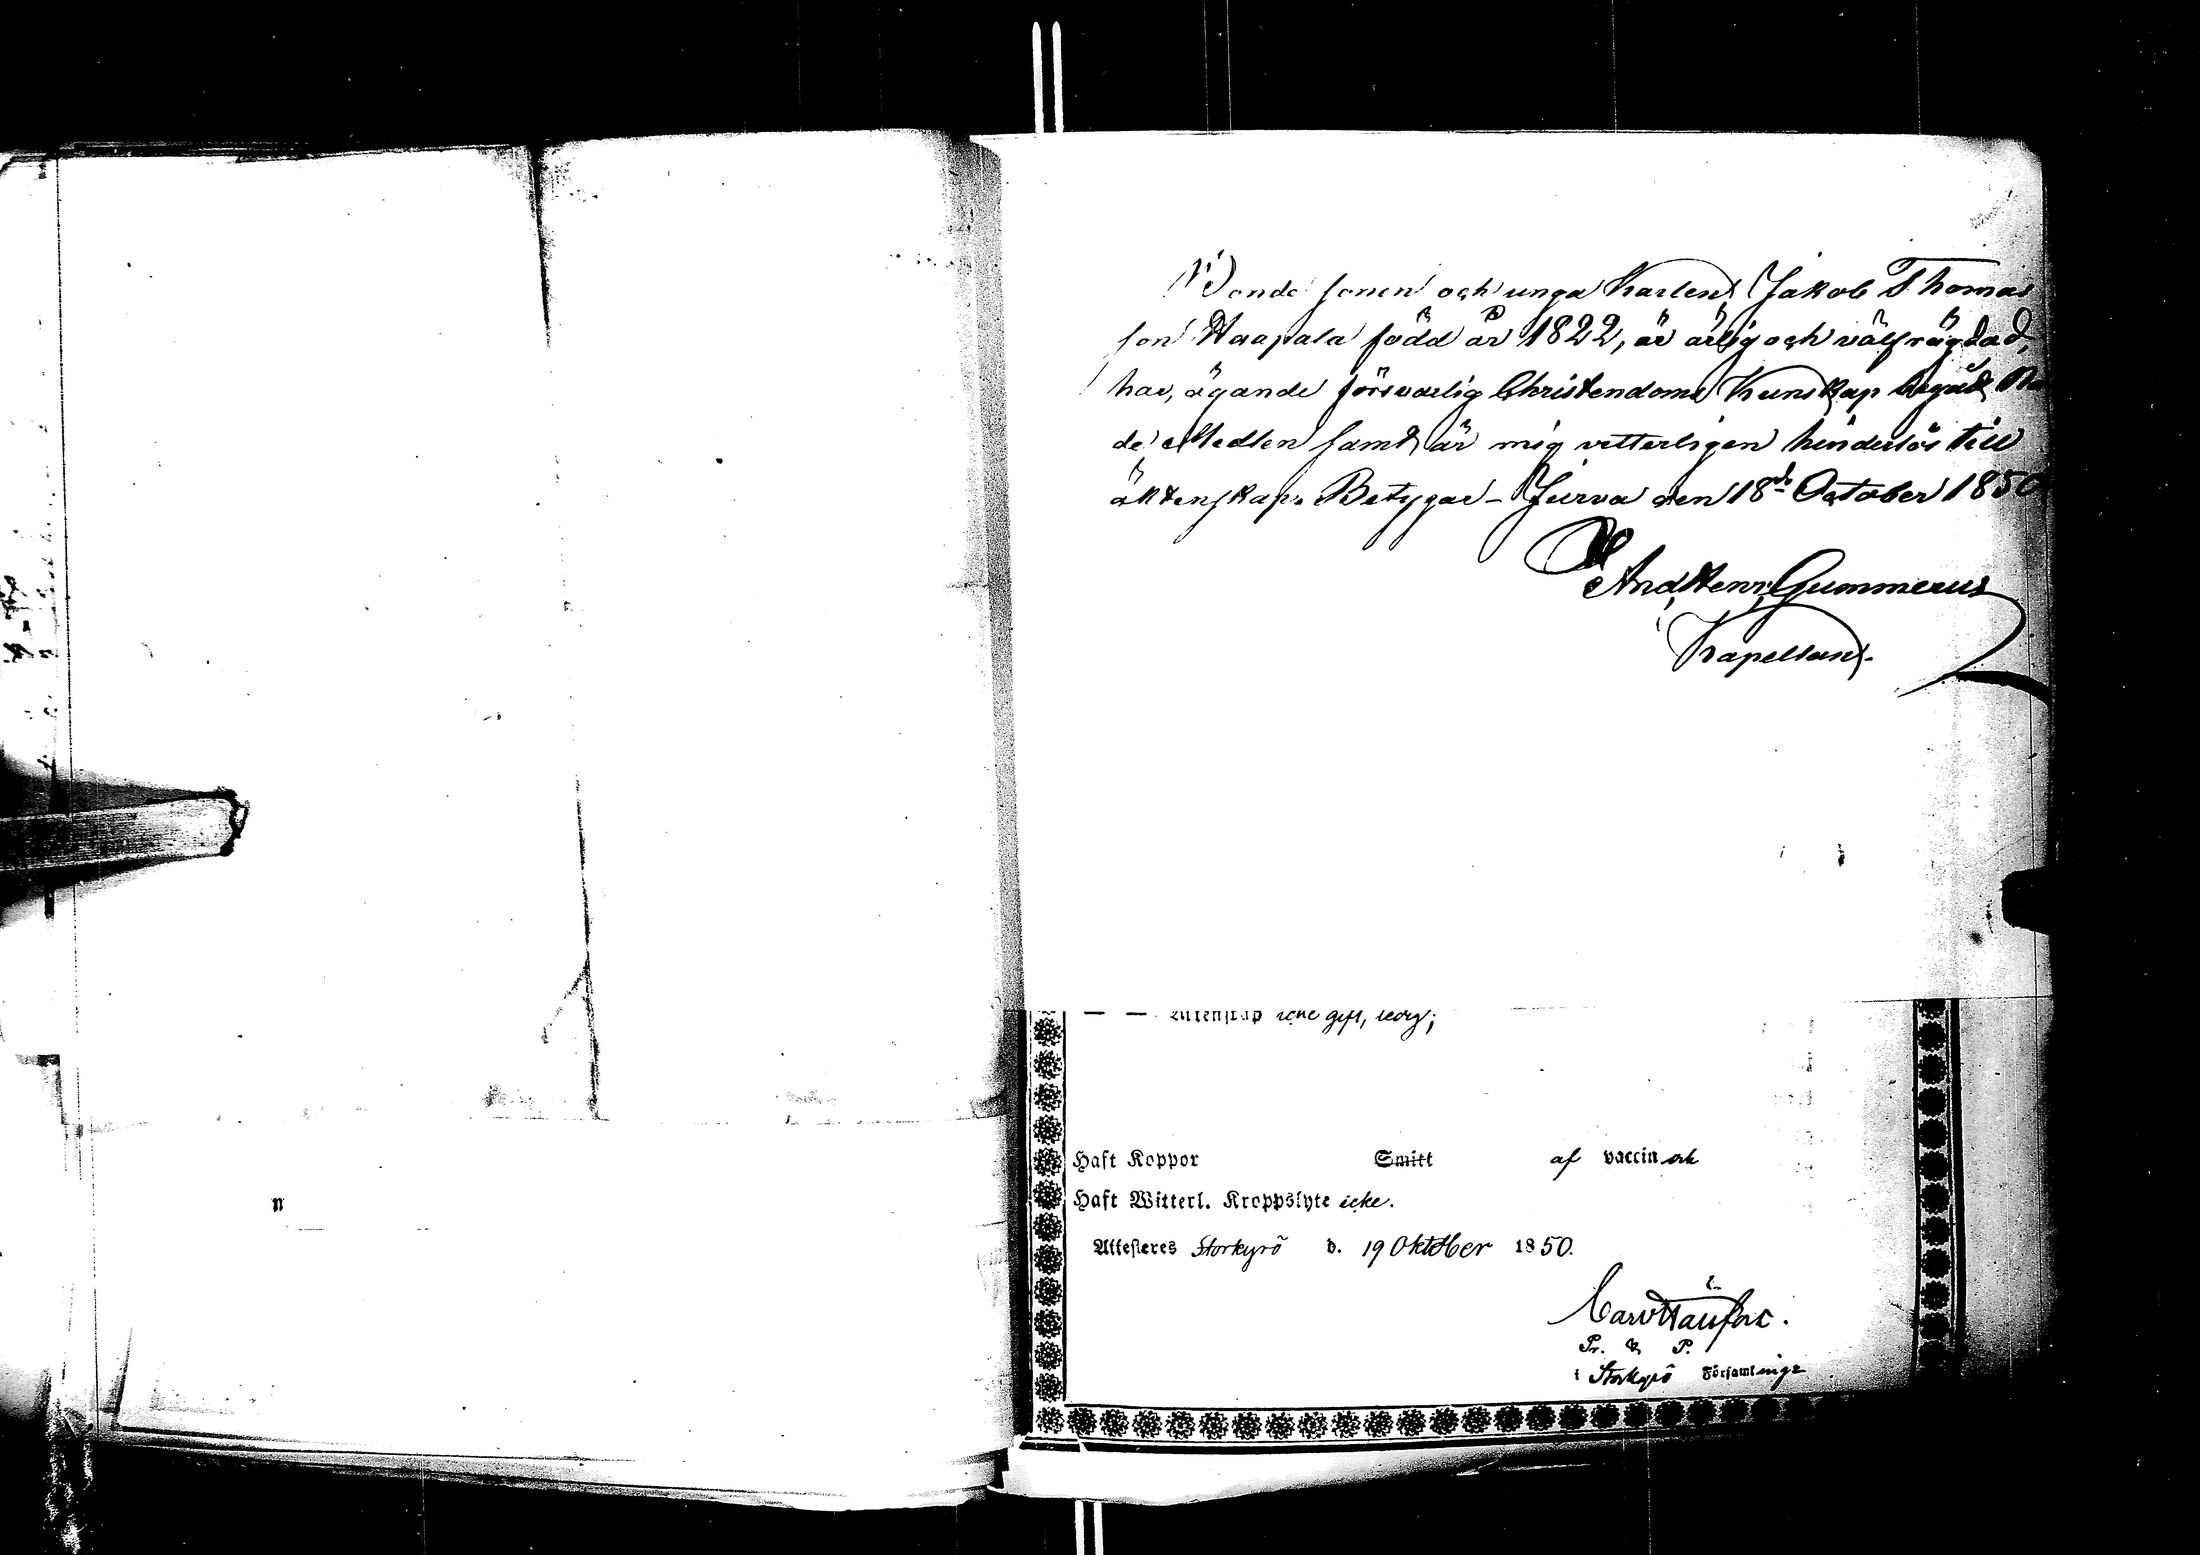 Bonde sonen och unga Karlen Jakob Thomas
son Haapala född år 1822, är ärlig och välfrägdad,
har, ägande försvarlig Christendoms Kunskap begått Na
de Medlen samt är mig vetterligen hinderlös till
äktenskap. Betygar – Jurva den 18de October 1850
And. Henr. Gummerus
Kapellan.
— — Äktenskap icke gift, ledig;
Haft Koppor Smitt af vaccin och
Haft Witterl. Kroppslyte icke.
Attesteres Storkyrö d. 19 Oktober 1850.
Pr. & P.
i Storkyrö Församlinge
n